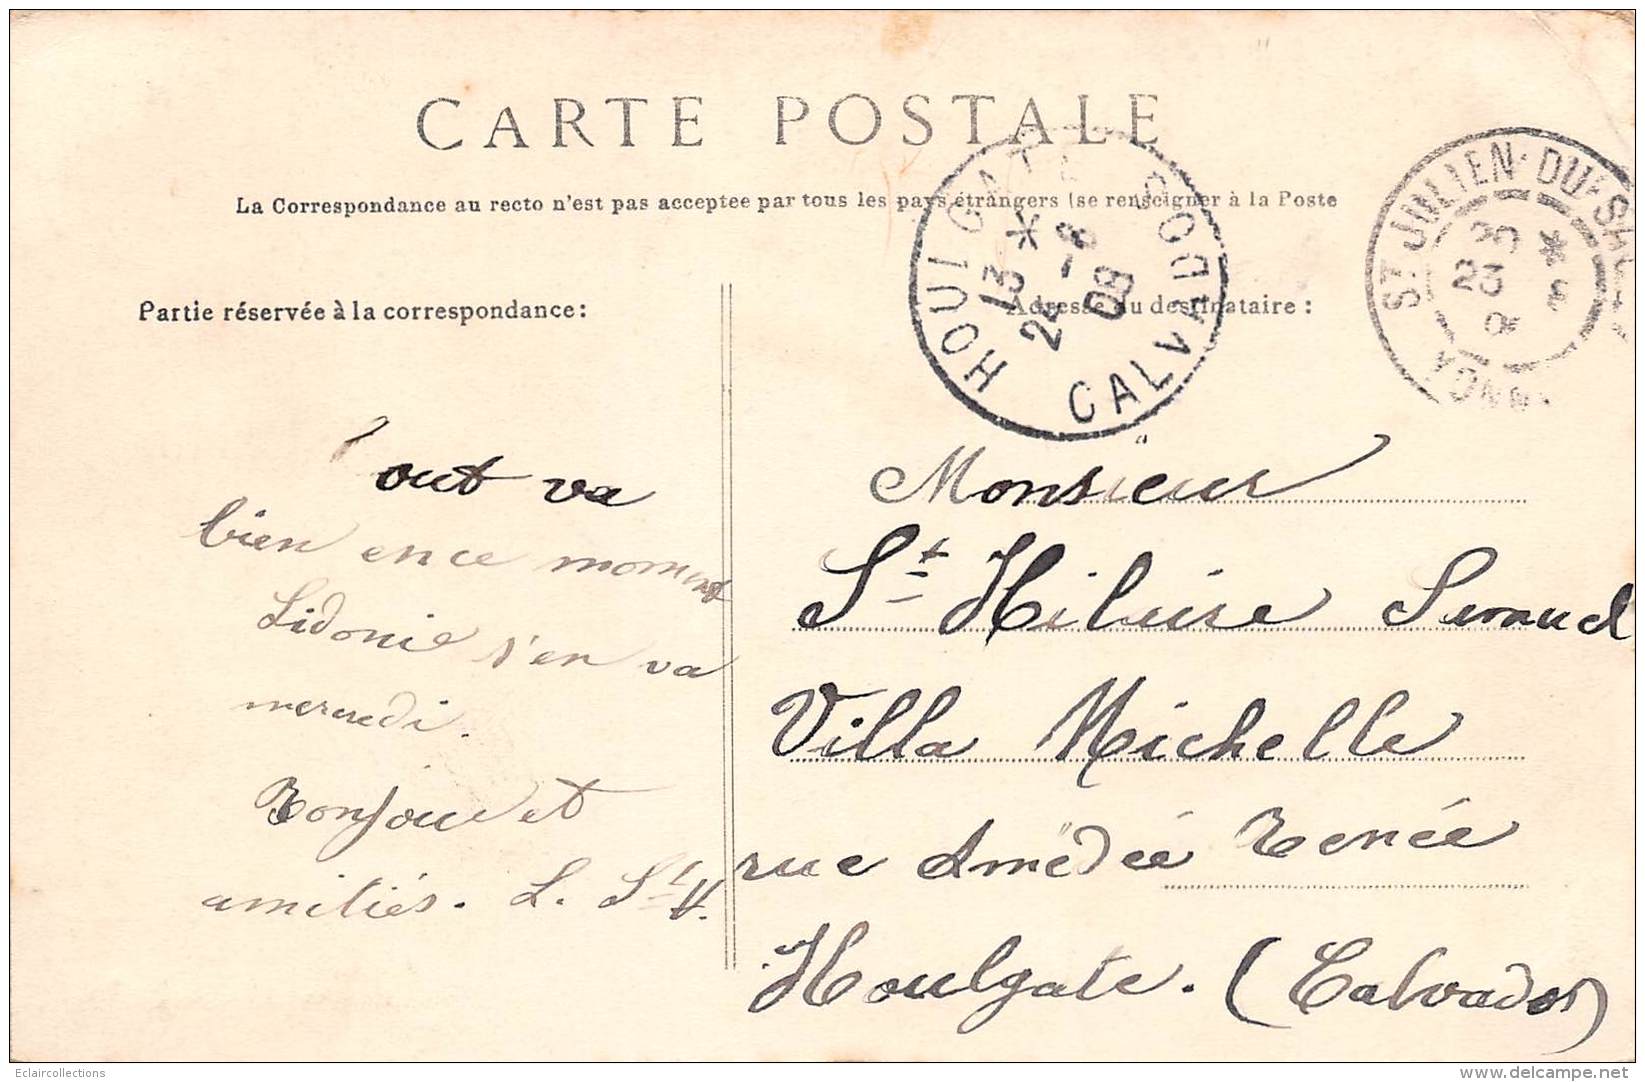 CARTE POSTALE
La Correspondance au recto n'est pas acceptee par tous les pays étrangers (se renseigner à la Poste
Partie réservée à la correspondance:
Tout va
bien en ce moment
Sidonie s'en va
mercredi.
Bonjour et
amitiés. L. St H.
Adresse du destinataire :
HOULGATE CALVADOS
13 *
24 -8
09
ST JULIEN-DU-SAULT
20 *
23 8
Monsieur
St Hilaire
Villa Michelle
rue Amédée Renée
Houlgate. (Calvados)
Eclaircollections
delcampe.net